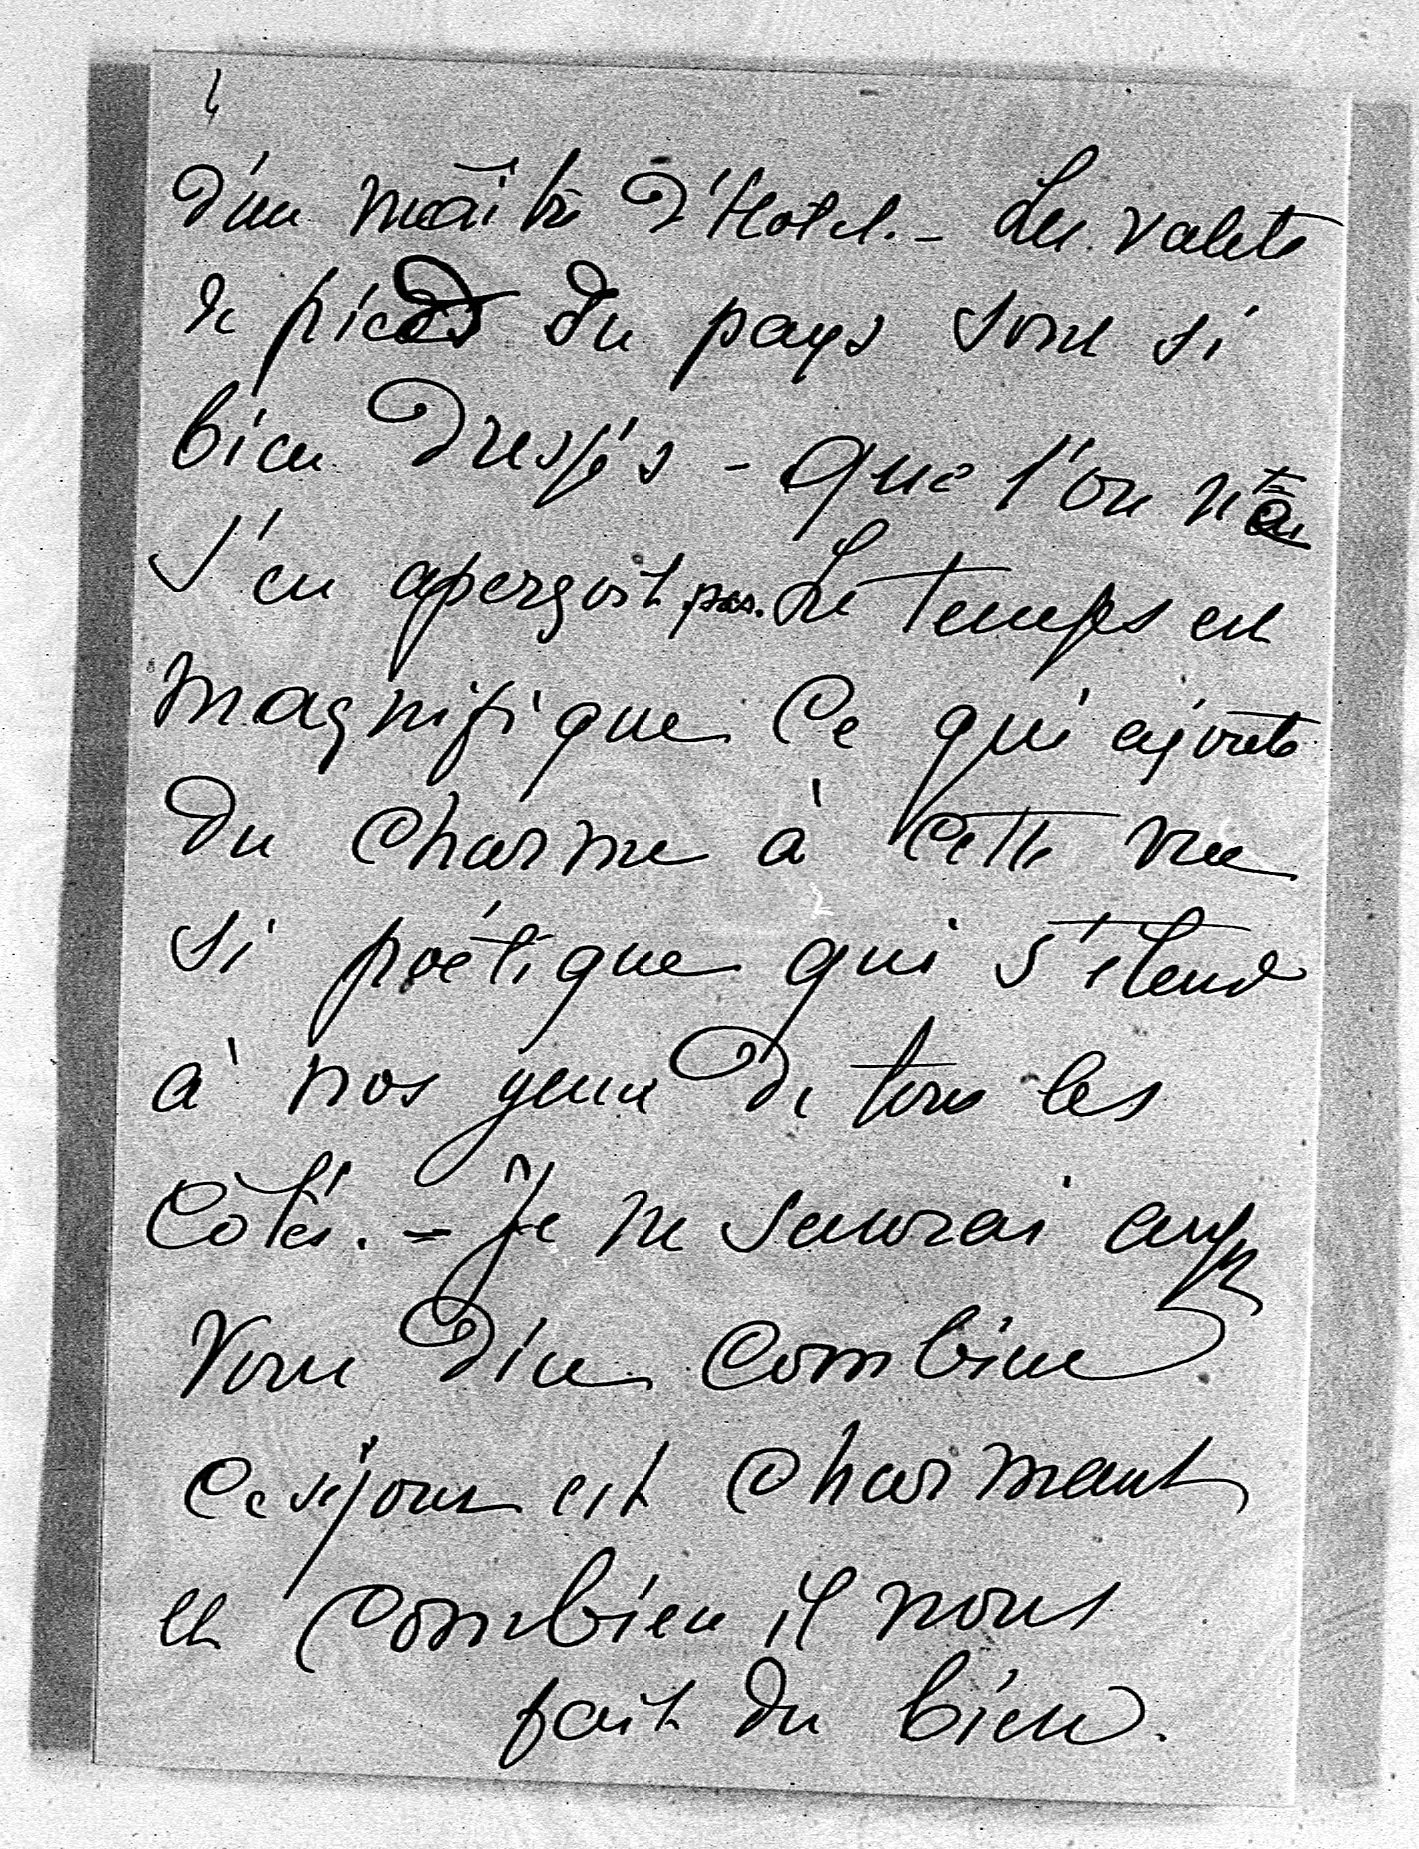 4
d'un maître d'Hotel. - Les valets
de pieds du pays sont si
bien dressés - que l'on ne
s'en aperçoit pas. Le temps est
magnifique Ce qui ajoute
du charme à cette vue
si poétique qui s'étend
à nos yeux de tous les
Côtés. - Je ne saurai assez
vous dire Combien
ce séjour est charmant
et Combien il nous
fait du bien.